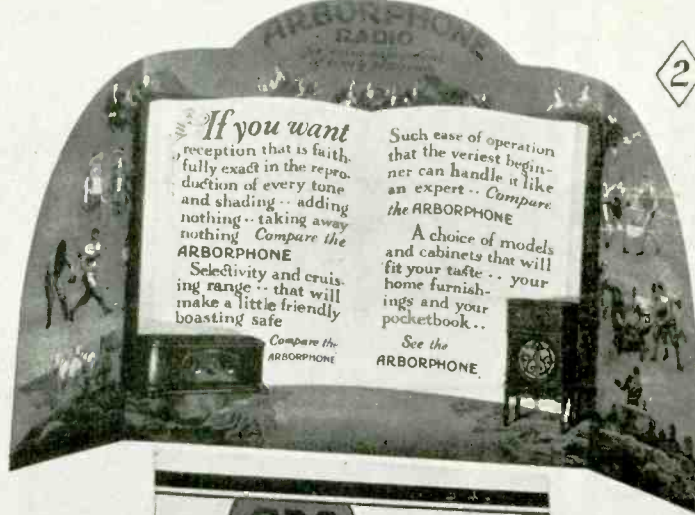 ARBORPHONE
RADIO
2
If you want
reception that is faith-
fully exact in the repro-
duction of every tone
and shading·· adding
nothing·· taking away
nothing Compare the
ARBORPHONE
Selectivity and cruis-
ing range·· that will
make a little friendly
boasting safe
Compare the
ARBORPHONE
Such ease of operation
that the veriest begin-
ner can handle it like
an expert·· Compare
the ARBORPHONE
A choice of models
and cabinets that will
fit your taste·· your
home furnish-
ings and your
pocketbook··
See the
ARBORPHONE